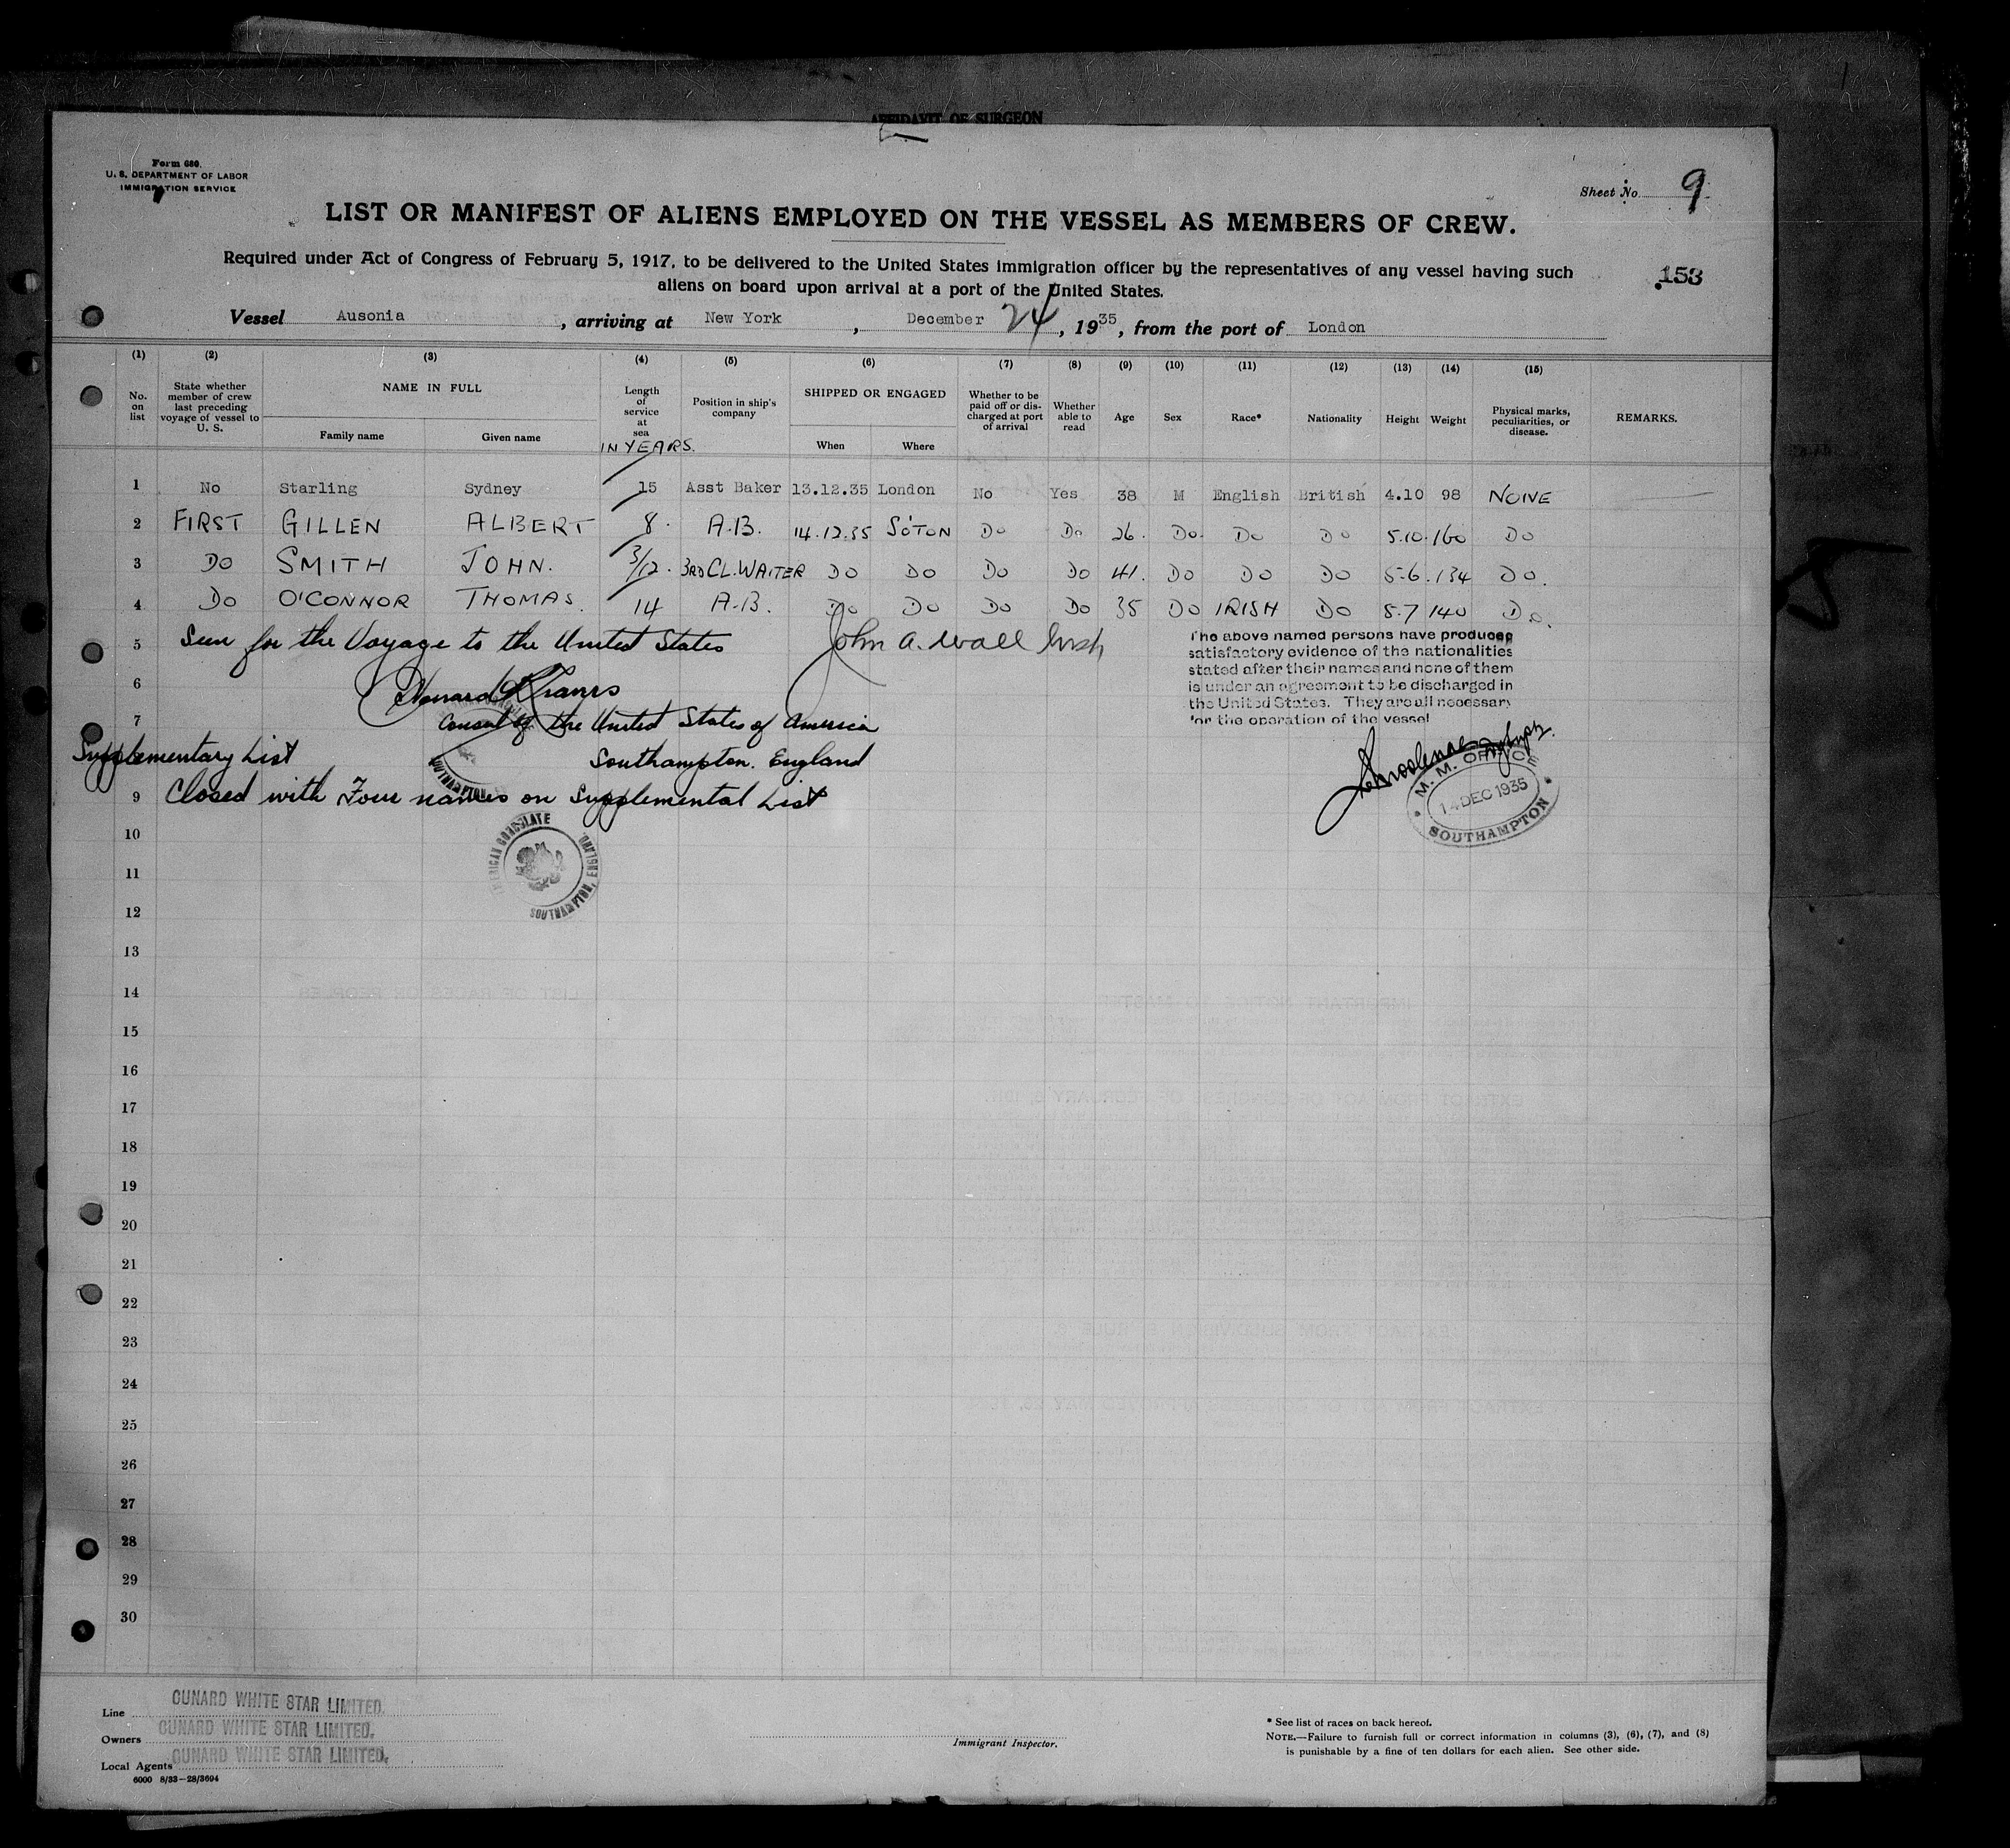 AFFIDAVIT OF SURGEON
Form 680.
U. S. DEPARTMENT OF LABOR
IMMIGRATION SERVICE
Sheet No. 9
LIST OR MANIFEST OF ALIENS EMPLOYED ON THE VESSEL AS MEMBERS OF CREW.
Required under Act of Congress of February 5, 1917, to be delivered to the United States immigration officer by the representatives of any vessel having such
aliens on board upon arrival at a port of the United States.
153
Vessel Ausonia, arriving at New York, December 24, 1935, from the port of London
(1) (2) (3) (4) (5) (6) (7) (8) (9) (10) (11) (12) (13) (14) (15)
No. on list
State whether member of crew last preceding voyage of vessel to U. S.
NAME IN FULL
Family name
Given name
Length of service at sea
IN YEARS.
Position in ship's company
SHIPPED OR ENGAGED
When
Where
Whether to be paid off or discharged at port of arrival
Whether able to read
Age
Sex
Race*
Nationality
Height
Weight
Physical marks, peculiarities, or disease.
REMARKS.
1 No Starling Sydney 15 Asst Baker 13.12.35 London No Yes 38 M English British 4.10 98 NONE
2 FIRST GILLEN ALBERT 8. A.B. 14.12.35 SO'TON DO DO 26. DO. DO DO 5.10. 160 DO
3 DO SMITH JOHN. 3/12. 3RD CL. WAITER DO DO DO DO 41. DO DO DO 5.6. 134 DO.
4 DO O'CONNOR THOMAS. 14 A.B. DO DO DO DO 35 DO IRISH DO 5.7 140 DO.
5 Seen for the Voyage to the United States John A. Wall
The above named persons have produced
satisfactory evidence of the nationalities
stated after their names and none of them
is under an agreement to be discharged in
the United States. They are all necessary
for the operation of the vessel
6
7 Consul of the United States of America
Supplementary List Southampton. England
9 Closed with Four names on Supplemental List
M. M. OFFICE
14 DEC 1935
SOUTHAMPTON
AMERICAN CONSULATE
SOUTHAMPTON, ENGLAND
10
11
12
13
14
15
16
17
18
19
20
21
22
23
24
25
26
27
28
29
30
Line CUNARD WHITE STAR LIMITED.
Owners CUNARD WHITE STAR LIMITED.
Local Agents CUNARD WHITE STAR LIMITED.
6000 8/33—28/3694
Immigrant Inspector.
* See list of races on back hereof.
NOTE.—Failure to furnish full or correct information in columns (3), (6), (7), and (8)
is punishable by a fine of ten dollars for each alien. See other side.